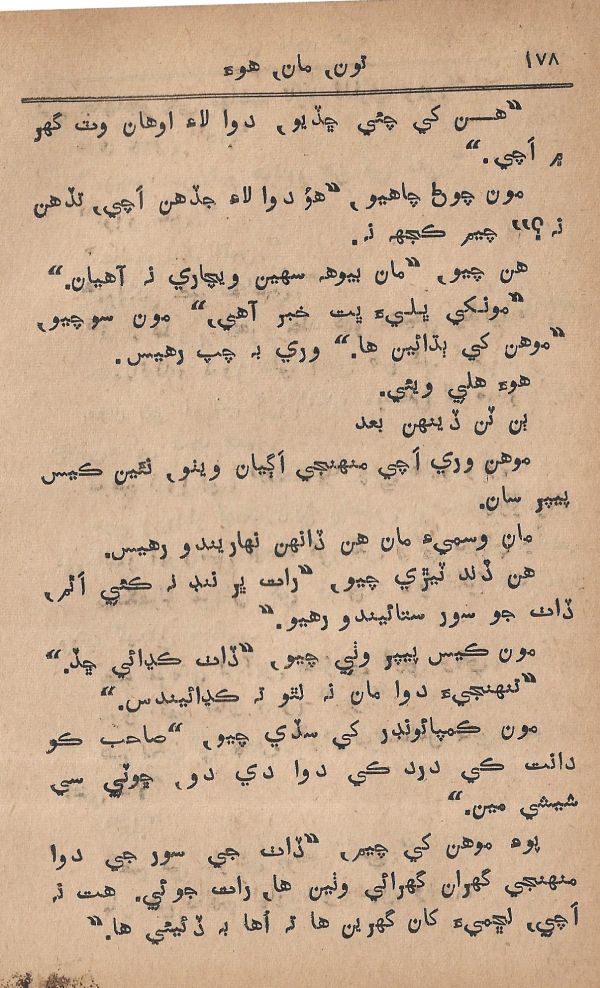 ۱۷۸ تون, مان, هوءَ
”هـن کي چئي ڇڏيو, دوا لاءِ اوهان وٽ گهر
۾ اَچي.“
مون چوڻ چاهيو, ”هوُ دوا لاءِ جڏهن اَچي, تڏهن
نہ؟“ چيم ڪجهہ نہ.
هن چيو, ”مان ٻيوهہ سهين ويچاري نہ آهيان.“
”مونکي ڀليءَ ڀت خبر آهي,“ مون سوچيو,
”موهن کي ٻڌائين ها.“ وري بہ چپ رهيس.
هوءَ هلي ويئي.
ٻن ٽن ڏينهن بعد
موهن وري اَچي منهنجي اَڳيان ويٺو, نئين ڪيس
پيپر سان.
مان وسميءَ مان هن ڏانهن نهاريندو رهيس.
هن ڏند ٽيڙي چيو, ”رات ڀر ننڊ نہ ڪئي اَٿم,
ڏاٺ جو سور ستائيندو رهيو.“
مون ڪيس پيپر وٺي چيو, ”ڏاٺ ڪڍائي ڇڏ.“
”تنهنجيءَ دوا مان نہ لٿو تہ ڪڍائيندس.“
مون ڪمپائونڊر کي سڏي چيو, ”صاحب کو
دانت کي درد کي دوا دي دو, ڇوٽي سي
شيشي مين.“
پوءِ موهن کي چيم, ”ڏاٺ جي سور جي دوا
منهنجي گهران گهرائي وٺين ها, رات جوئي. هت نہ
اَچي, لڇميءَ کان گهرين ها تہ اُها بہ ڏئيئي ها.“